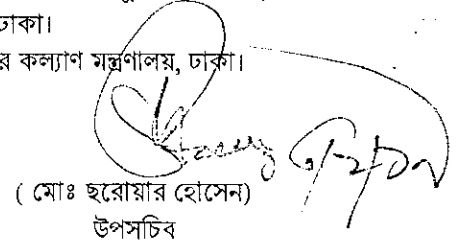 ঢাকা।
র কল্যাণ মন্ত্রণালয়, ঢাকা।
( মোঃ ছরোয়ার হোসেন)
উপসচিব